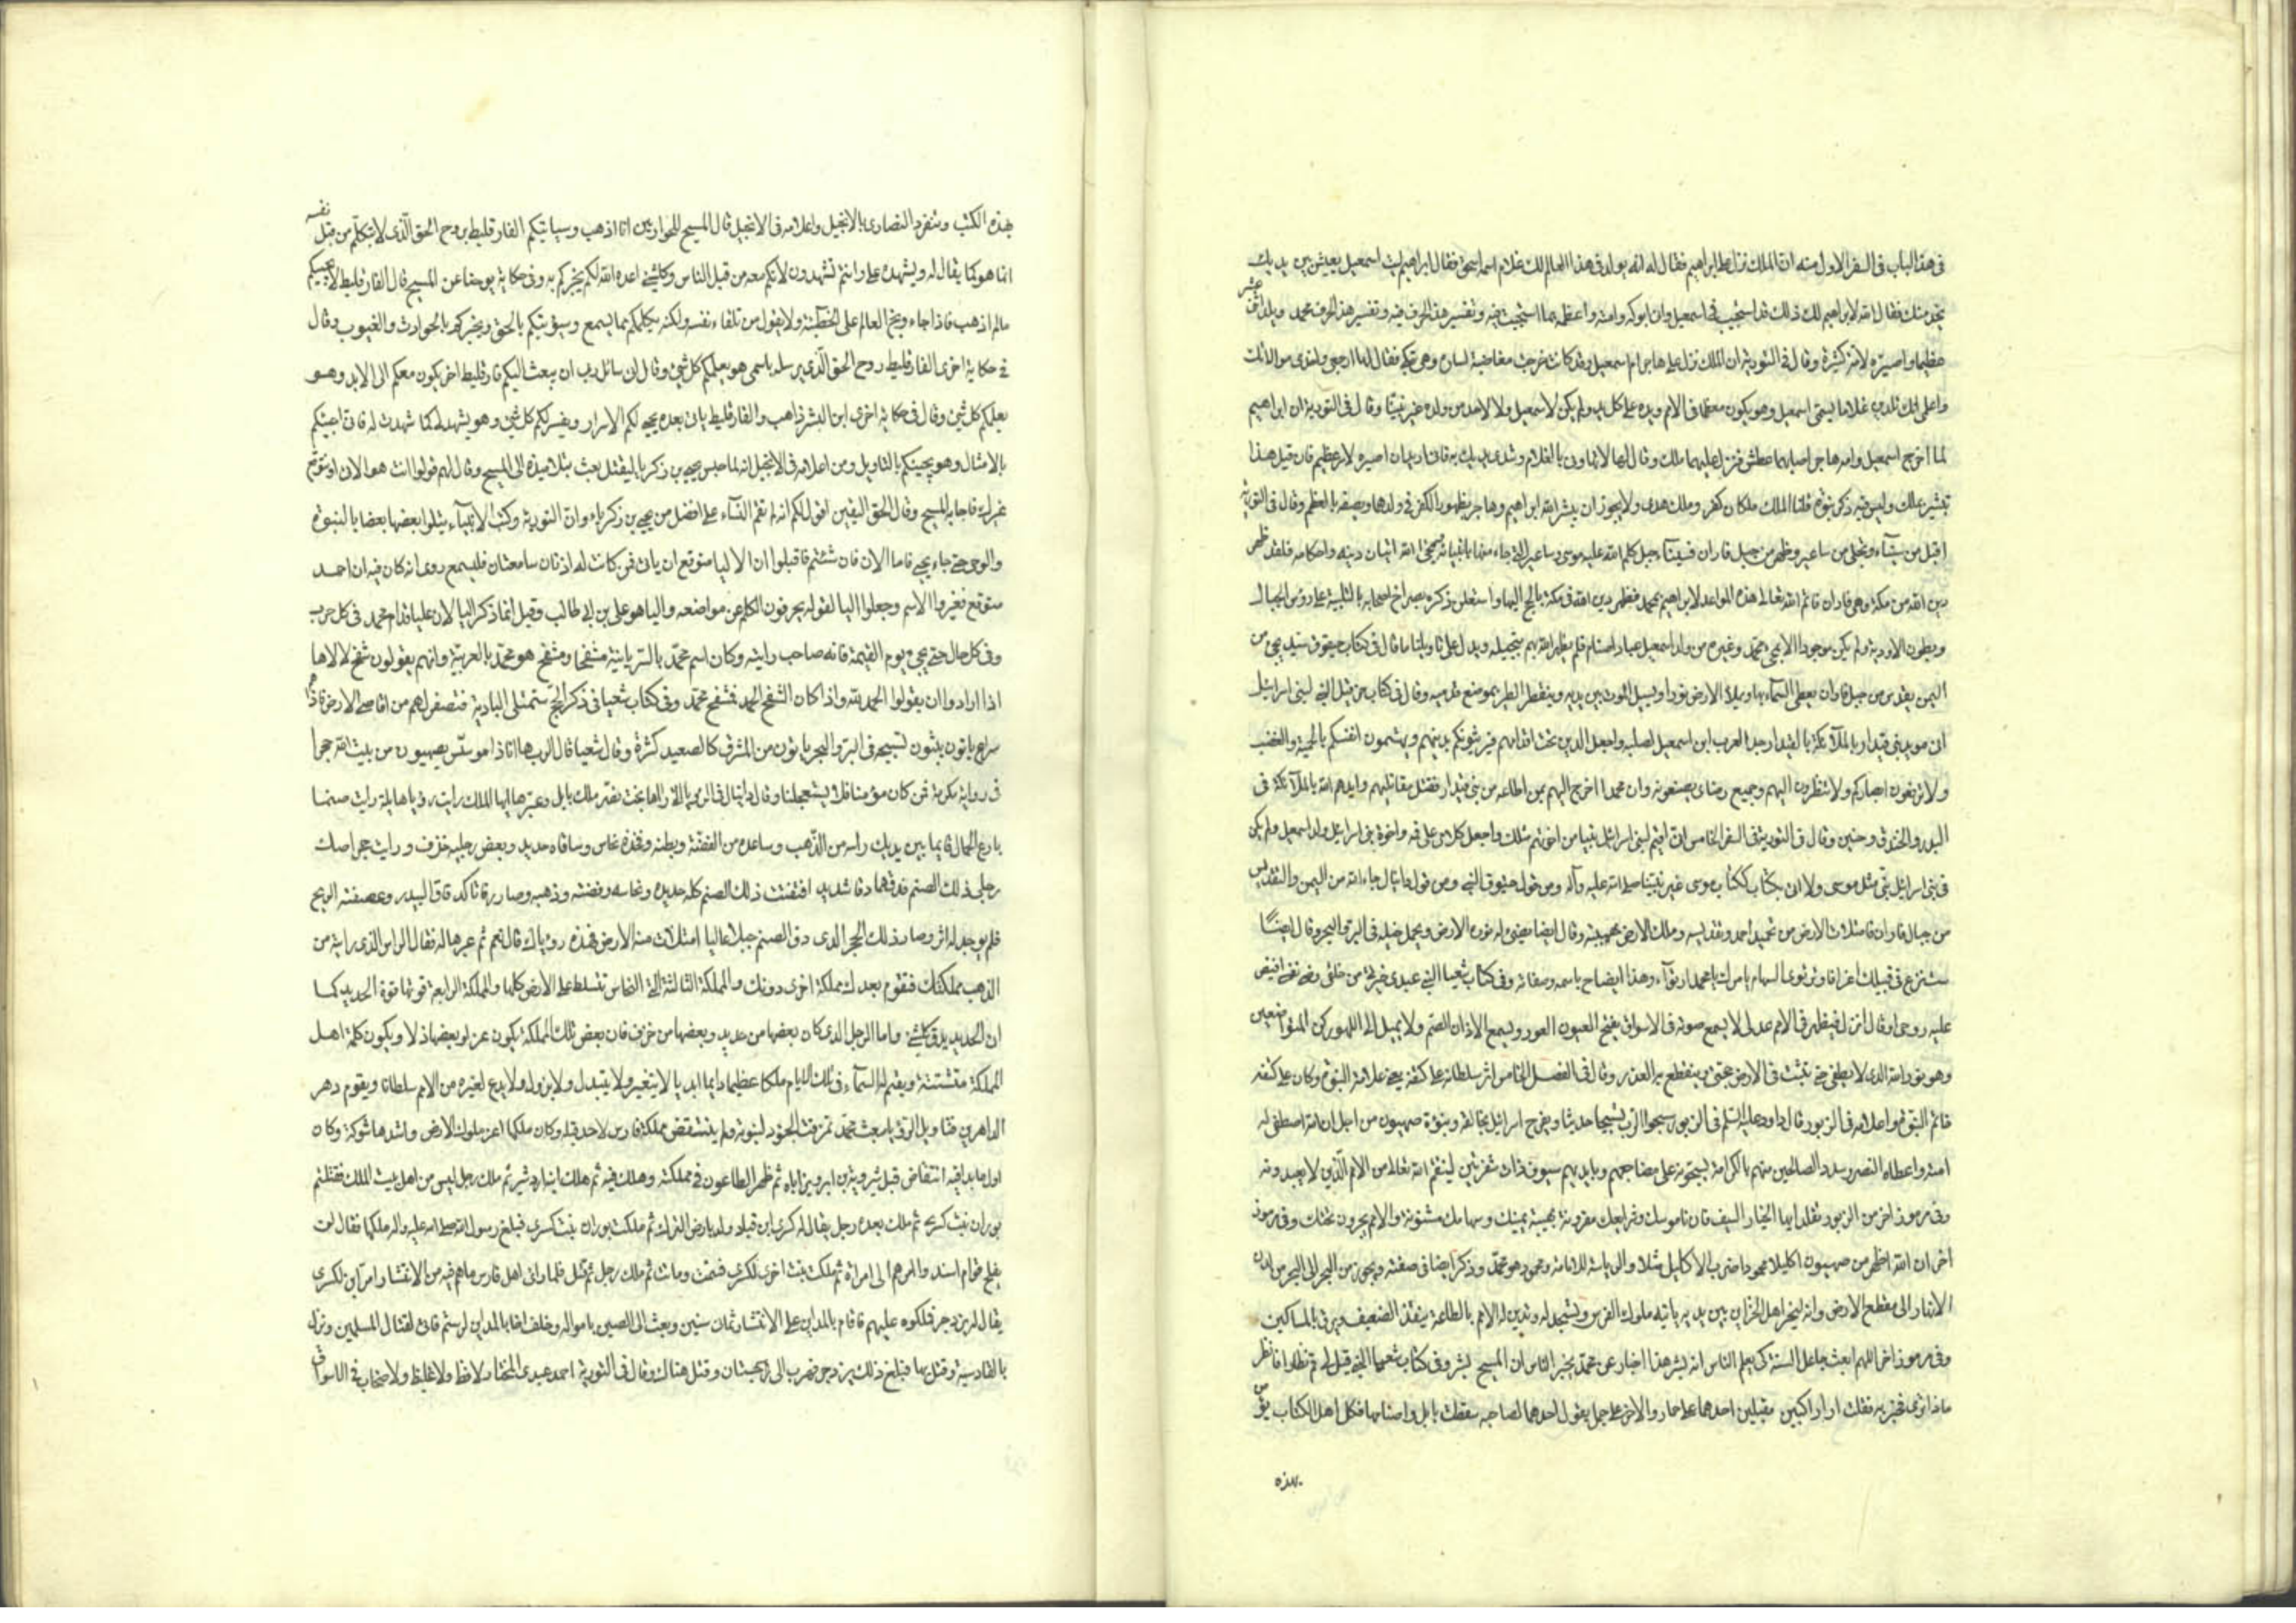 في هذا الباب في السفر الاول منه ان الملك نزل على ابراهيم فقال له انه يولد في هذا العالم لك غلام اسمه اسحق فقال ابراهيم ليت اسمعيل يعيش بين يديك
يخدمك فقال الله لابراهيم لك ذلك قد استجيب في اسمعيل وان ابركه وامنه واعظمه بما استجيبت فيه وتفسير هذا الحرف محمد ويلد اثنى عشر
عظيما واصيره لامة كثيرة وقال في التورية ان الملك نزل على هاجر ام اسمعيل وقد كانت خرجت مغاضبة لسارة وهي تبكي فقال لها ارجعي واخدمي مولاتك
واعلمي انك تلدين غلاما يسمى اسمعيل وهو يكون معظما في الامم ويده على كل يد ولم يكن لاسمعيل ولا لاحد من ولده غير نبينا وقال في التورية ان ابراهيم
لما اخرج اسمعيل وامه هاجر اصابهما عطش فنزل عليهما ملك وقال لها لا تهاوني بالغلام وشدي يديك به فاني اريد ان اصيره لامر عظيم فان قيل هذا
تبشير بملك وليس فيه ذكر نبوة قلنا الملك ملكان ملك كفر وملك هدى ولا يجوز ان يبشر الله ابراهيم وهاجر بظهور الكفر في ولدهما ويصفه بالعظم وقال في التورية
اقبل من سيناء وتجلى من ساعير وظهر من جبل فاران فسيناء جبل كلم الله عليه موسى وساعير الذي جاء منها بانبيائه فمجيء الله اتيان دينه واحكامه فلقد ظهر
دين الله من مكة وهي فاران فاتم الله تعالى هذه المواعد لابراهيم بمحمد فظهر دين الله في مكة بالحج اليها واستعلن ذكره بصراخ اصحابه بالتلبية على رؤس الجبال
وبطون الاودية ولم يكن موجودا الا بمجيء محمد وغيره من ولد اسمعيل عباد اصنام فلم يظهر الله بهم تبجيله ويدل على تاويلنا ما قال في كتاب حيقوق سيد يجيء من
اليمن يقدس من جبل فاران يغطي السماء بهاء ويملأ الارض نورا ويسير الموت بين يديه وينفطر الطير بموضع قدميه وقال في كتاب حزقيل النبي لبني اسرائيل
اني مويد بني قيدار بالملائكة بالقيدار جد العرب ابن اسمعيل لصلبه واجعل الدين تحت اقدامهم فيريثونكم بدينهم ويهشمون انفسكم بالحمية والغضب
ولا ترفعون ابصاركم ولا تنظرون اليهم وجميع رضاي يصنعونه وان محمدا اخرج اليهم بمن اطاعه من بني قيدار فقتل مقاتليهم وايدهم الله بالملائكة في
البدر والخندق وحنين وقال في التورية في السفر الخامس اني اقيم لبني اسرائيل نبيا من اخوتهم مثلك واجعل كلامي على فمه واخوة بني اسرائيل ولد اسمعيل ولم يكن
في بني اسرائيل نبي مثل موسى ولا اتى بكتاب ككتاب موسى غير نبينا صلى الله عليه وآله ومن قول حيقوق النبي ومن قول دانيال جاء الله من اليمن والتقديس
من جبال فاران فامتلات الارض من تحميد احمد وتقديسه وملك الارض بهيبته وقال ايضا يضيء له نوره الارض ويحمل خيله في البر والبحر وقال ايضا
ستنزع في قسيك اغراقا وترتوي السهام بامرك يا محمد ارتواء وهذا ايضاح باسمه وصفاته وفي كتاب شعيا النبي عبدي خيرتي من خلقي رضي نفسي افيض
عليه روحي او قال انزل فيظهر في الامم عدلي لا يسمع صوته في الاسواق يفتح العيون العور ويسمع الاذان الصم ولا يميل الى اللهو ركن المتواضعين
وهو نور الله الذي لا يطفى حتى تثبت في الارض حجتي وينقطع به العذر وقال في الفصل الخامس اثر سلطانه على كتفه يعني علامة النبوة وكان على كتفه
خاتم النبوة واعلامه في الزبور قال داود عليه السلم في الزبور سبحوا الرب تسبيحا حديثا وليفرح اسرائيل بخالقه وبنوة صهيون من اجل ان الله اصطفى له
امته واعطاه النصر وسدد الصالحين منهم بالكرامة يسبحونه على مضاجعهم وبايديهم سيوف ذات شفرتين لينتقم الله تعالى من الامم الذين لا يعبدونه
وفي مرموز اخر من الزبور تقلد ايها الخيار السيف فان ناموسك وشرايعك مقرونة بهيبة يمينك وسهامك مشنونة والامم يخرون تحتك وفي مرموز
اخر ان الله اظهر من صهيون اكليلا محمودا ضرب الاكاليل مثلا والرياسة للامامة ومحمود هو محمد وذكر ايضا في صفته ويجوز من البحر الى البحر من لدن
الانهار الى مقطع الارض وانه ليخر اهل الخزاين بين يديه ياتيه ملوك الفرس وتسجد له وتدين له الامم بالطاعة ينقذ الضعيف ويرق بالمساكين
وفي مرموز اخر اللهم ابعث جاعل السنة كي يعلم الناس انه بشر هذا اخبار عن محمد يخبر الناس ان المسيح بشر وفي كتاب شعيا النبي قيل لي قم نظارا فانظر
ماذا ترى فخبر به فقلت ارى راكبين مقبلين احدهما على حمار والاخر على جمل يقول احدهما لصاحبه سقطت بابل واصنامها فكل اهل الكتاب يؤمن
بهذه
بهذه الكتب وتنفرد النصارى بالانجيل واعلامه في الانجيل قال المسيح للحواريين انا اذهب وسياتيكم الفارقليط بروح الحق الذي لا يتكلم من قبل نفسه
انما هو كما يقال له ويشهد علي وانتم تشهدون لانكم معه من قبل الناس وكل شيء اعده الله لكم يخبركم به وفي حكاية يوحنا عن المسيح قال الفارقليط لا يجيئكم
ما لم اذهب فاذا جاء وبخ العالم على الخطيئة ولا يقول من تلقاء نفسه ولكنه يكلمكم مما يسمع وسيؤتيكم بالحق ويخبركم بالحوادث والغيوب وقال
في حكاية اخرى الفارقليط روح الحق الذي يرسله باسمي هو يعلمكم كل شيء وقال اني سائل ربي ان يبعث اليكم فارقليط اخر يكون معكم الى الابد وهو
يعلمكم كل شيء وقال في حكاية اخرى ابن البشر ذاهب والفارقليط ياتي بعده يجيء لكم الاسرار ويفسر لكم كل شيء وهو يشهد لي كما شهدت له فاني اجيئكم
بالامثال وهو يجيئكم بالتاويل ومن اعلامه في الانجيل انه لما حبس يحيى بن زكريا ليقتل بعث بتلاميذه الى المسيح وقال لهم قولوا انت هو الاتي او نتوقع
غيرك فاجابه المسيح وقال الحق اليقين اقول لكم انه لم تقم النساء على افضل من يحيى بن زكرياء وان التورية وكتب الانبياء يتلوا بعضها بعضا بالنبوة
والوحي حتى جاء يحيى فاما الان فان شئتم فاقبلوا ان الاليا متوقع ان ياتي فمن كانت له اذنان سامعتان فليسمع روى انه كان فيه ان احمد
متوقع فغيروا الاسم وجعلوا اليا لقوله يحرفون الكلم عن مواضعه واليا هو علي بن ابي طالب وقيل انما ذكر اليا لان عليا قدام محمد في كل حرب
وفي كل حال حتى يجيء يوم القيمة فانه صاحب رايته وكان اسم محمد بالسريانية مشفحا ومشفح هو محمد بالعربية وانهم يقولون شفح لالاها
اذا ارادوا ان يقولوا الحمد لله واذا كان الشفح الحمد فمشفح محمد وفي كتاب شعيا في ذكر الحج ستمتلي البادية فتصفر لهم من اقاصي الارض فاذا هم
سراع ياتون يبثون تسبيحه في البر والبحر ياتون من المشرق كالصعيد كثرة وقال شعيا قال الرب ها انا ذا موسس بصهيون من بيت الله حجرا
في رواية مكرمة فمن كان مؤمنا فلا يستعجلنا وقال دانيال في الرؤيا التي راها بخت نصر ملك بابل وعبرها ايها الملك رايت رؤيا هايلة رايت صنما
بارع الجمال قايما بين يديك راسه من الذهب وساعده من الفضة وبطنه وفخذه نحاس وساقاه حديد وبعض رجليه خزف ورايت حجرا صك
رجلي ذلك الصنم فدقهما دقا شديدا فتفتت ذلك الصنم كله حديده ونحاسه وفضته وذهبه وصار رفاتا كدقاق البيدر وعصفته الريح
فلم يوجد له اثر وصار ذلك الحجر الذي دق الصنم جبلا عاليا امتلات منه الارض فهذه رؤياك قال نعم ثم عبرها له فقال الراس الذي رايته من
الذهب مملكتك فتقوم بعدك مملكة اخرى دونك والمملكة الثالثة التي النحاس تتسلط على الارض كلها والمملكة الرابعة قوتها قوة الحديد كما
ان الحديد يدق كل شيء واما الرجل الذي كان بعضها من حديد وبعضها من خزف فان بعض تلك المملكة يكون عزا وبعضها ذلا ويكون كلمة اهل
المملكة متشتتة ويقيم اله السماء في تلك الايام ملكا عظيما دايما ابديا لا يتغير ولا يتبدل ولا يزول ولا يدع لغيره من الامم سلطانا ويقوم دهر
الداهرين فتاويل الرؤيا بعث محمد تمزقت الجنود لنبوته ولم ينتقض مملكة فارس لاحد قبله وكان ملكها اعز ملوك الارض واشدها شوكة وكان
اول ما بدا فيه انتقاض قتل شيرويه بن ابرويز اباه ثم ظهر الطاعون في مملكته وهلك فيه ثم هلك ابنه اردشير ثم ملك رجل ليس من اهل بيت الملك فقتلته
بوران بنت كسرى ثم ملك بعده رجل يقال له كسرى ابن قباد ولد بارض الترك ثم ملكت بوران بنت كسرى فبلغ رسول الله صلى الله عليه واله ملكها فقال لن
يفلح قوم اسندوا امرهم الى امراة ثم ملكت بنت اخرى لكسرى فسمت وماتت ثم ملك رجل ثم قتل فلما راى اهل فارس ما هم فيه من الانتشار امر ابن لكسرى
يقال له يزدجرد فملكوه عليهم فاقام بالمداين على الانتشار ثمان سنين وبعث الى الصين بامواله وخلف اخا بالمداين لرستم فاتى لقتال المسلمين ونزل
بالقادسية وقتل بها فبلغ ذلك يزدجرد فهرب الى سجستان وقتل هناك وقال في التورية احمد عبدي المختار لا فظ ولا غليظ ولا صخاب في الاسواق